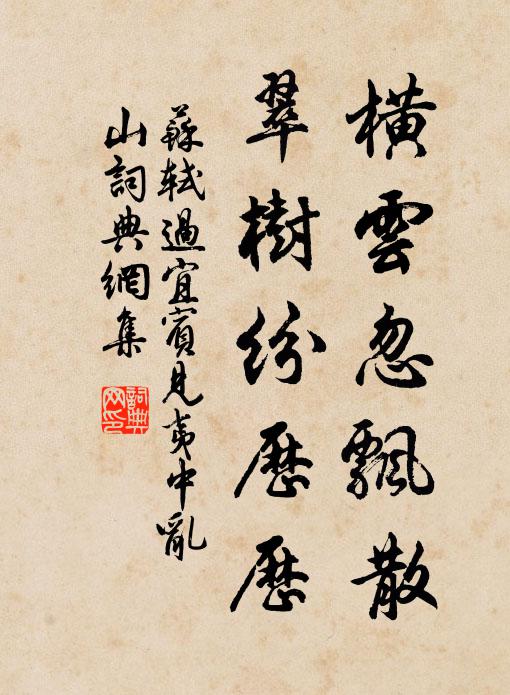 橫雲忽飄散
翠樹紛歷歷
蘇軾過宜賓見夷中亂
山詞典網集
詞典网印